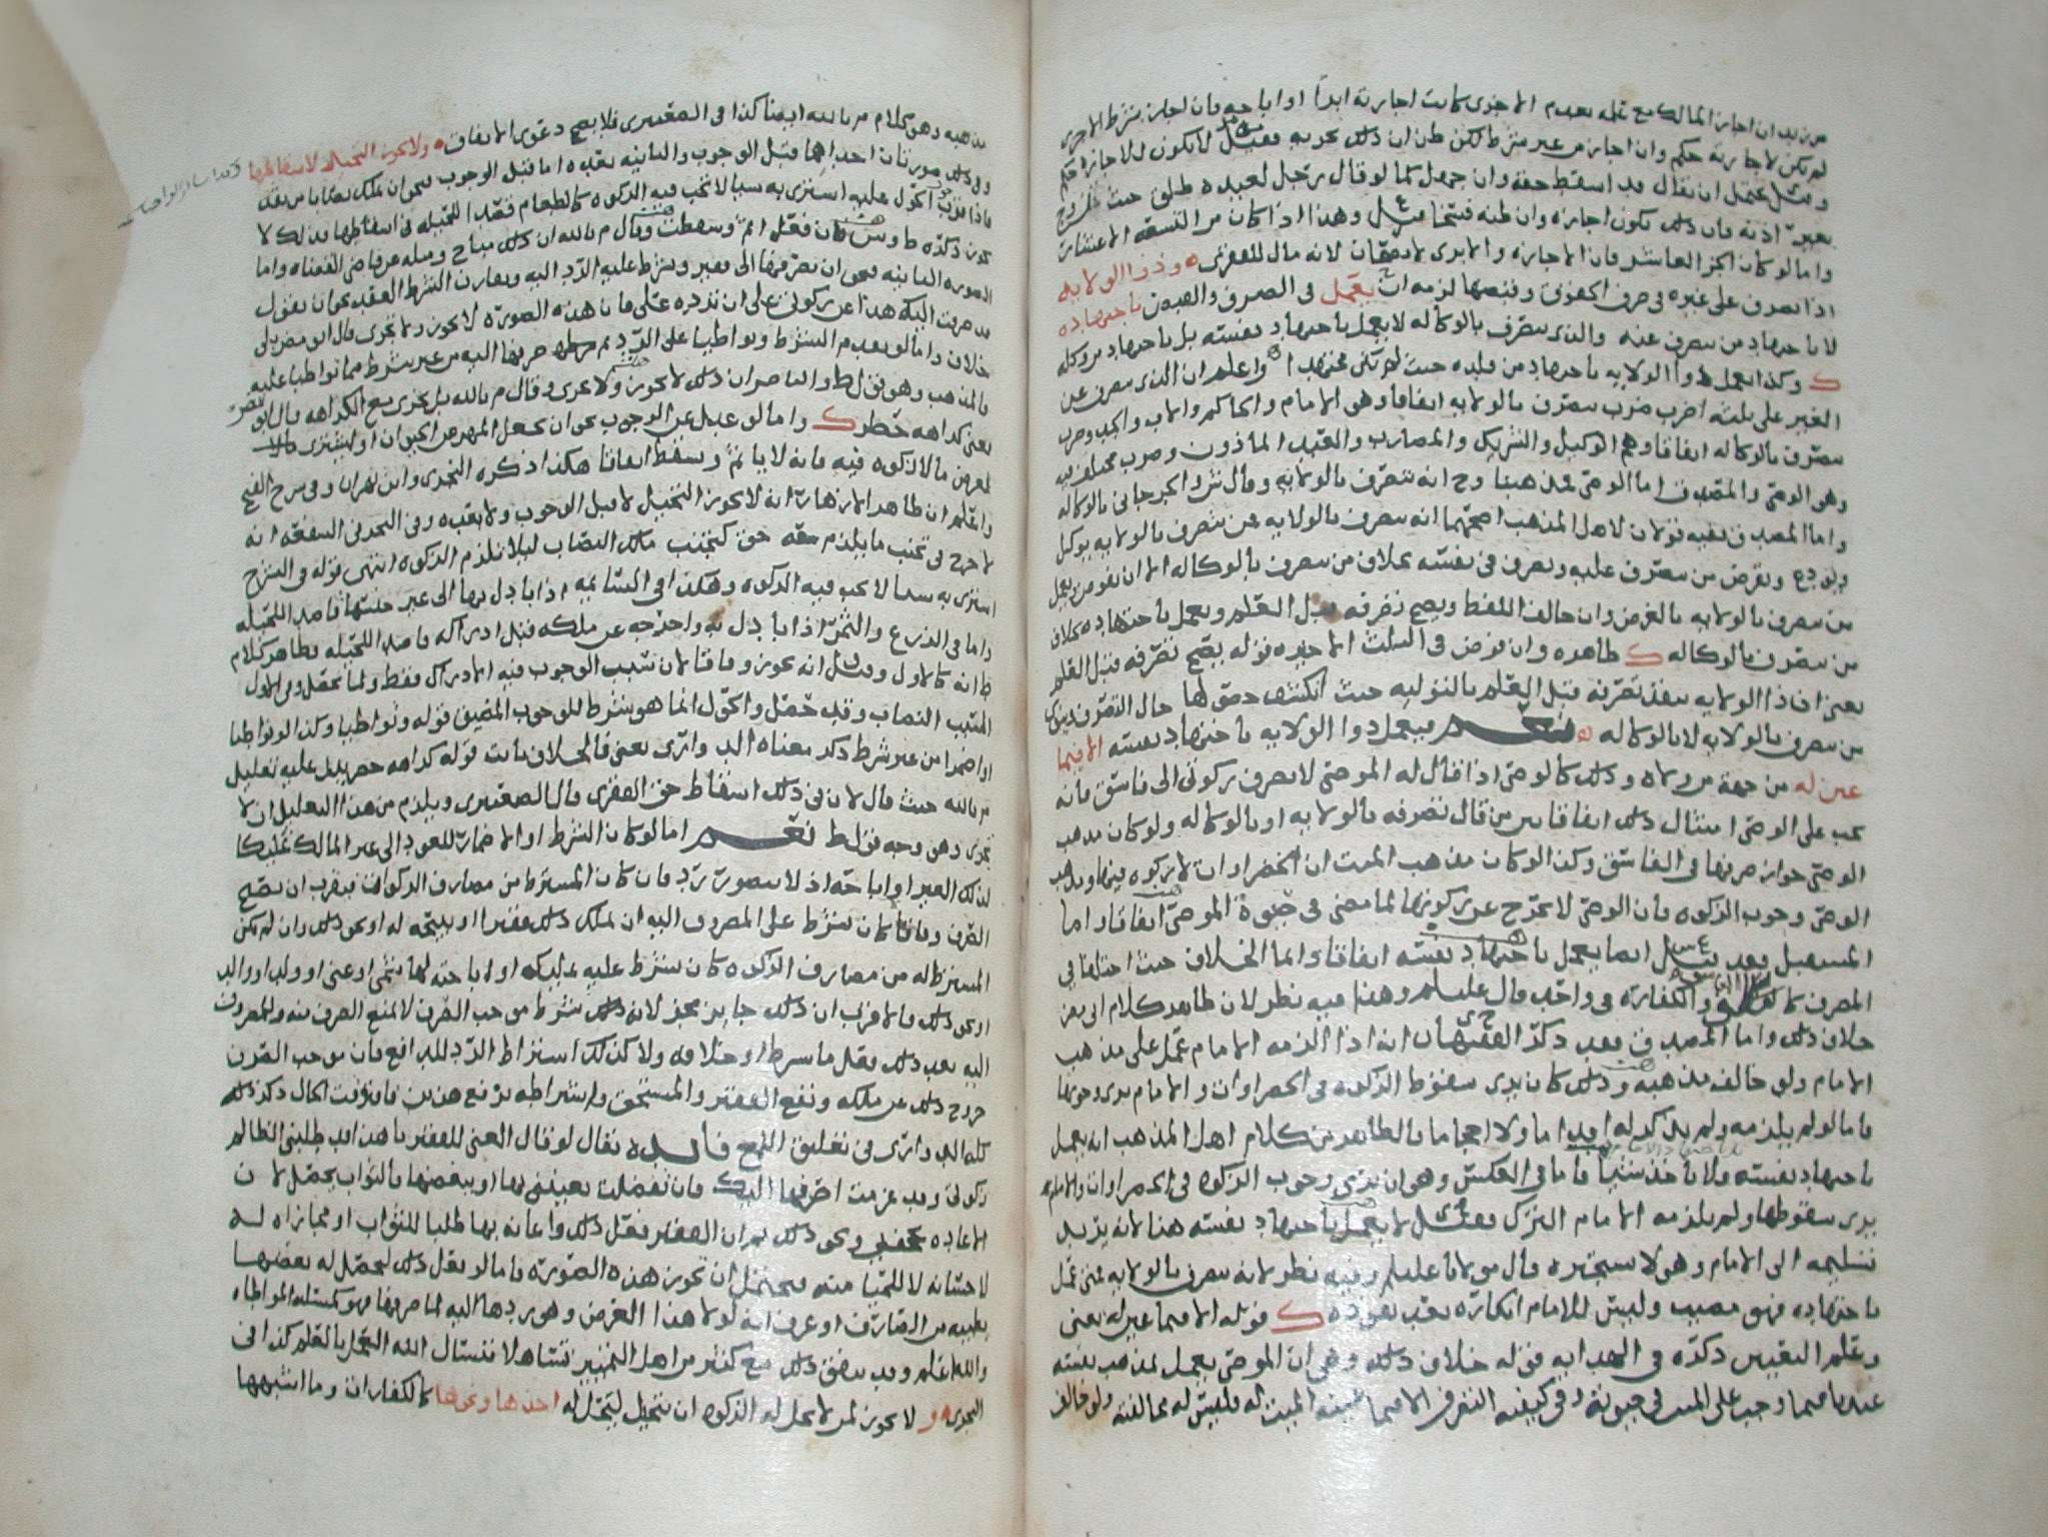 من يد ان اجاز المالك مع علمه بعدم الاجزى كانت اجازته ابدًا او اباحه فان اجاز بشرط الاجزى
لم يكن لاجازته حكم وان اجاز من غير شرط لكن ظن ان ذلك يجزيه فقيل لا يكون للاجازه حكم
وقيل يحتمل ان يقال قد اسقط حقه وان جهل كما لو قال رجل لعبده طلق حيث
بغير اذنه فان ذلك يكون اجازه وان ظنه وهذا اذا كان من التسعه الاعشار
واما لو كان الجز العاشر فان الاجازه والابرى لا يصحان لانه مال للفقرى وذو الولايه
اذا تصرف على غيره في صرف الحقوق وقبضها لزمه ان يعمل في الصرف والقبض باجتهاده
لا باجتهاد من يصرف عنه والذي يتصرف بالوكاله لا يعمل باجتهاد نفسه بل باجتهاد موكله
ك وكذا يعمل ذوا الولايه باجتهاد من قلده حيث لم يكن مجتهدا واعلم ان الذي يصرف عن
الغير على ثلثه اضرب ضرب يتصرف بالولايه اتفاقا وهو الامام والحاكم والاب والجد وضرب
يتصرف بالوكاله اتفاقا وهم الوكيل والشريك والمضارب والعبد الماذون وضرب مختلف فيه
وهو الوصي والمصدق اما الوصي فمذهبنا وح انه يتصرف بالولايه وقال ش والجرجاني بالوكاله
واما المصدق ففيه قولان لاهل المذهب اصحهما انه يتصرف بالولايه فمن يتصرف بالولايه يوكل
ويودع ويقرض من يتصرف عليه ويصرف في نفسه بخلاف من يصرف بالوكاله الا ان يفوض ويعمل
من يصرف بالولايه بالغرض وان خالف اللفظ ويصح تصرفه قبل العلم ويعمل باجتهاده بخلاف
من يتصرف بالوكاله ك ظاهره وان فوض في الثلث الاخيره قوله يصح تصرفه قبل العلم
يعني ان ذا الولايه ينفذ تصرفه قبل العلم بالتوليه حيث انكشف حصولها حال التصرف
من يصرف بالولايه لا بالوكاله نعم فيعمل ذوا الولايه باجتهاد نفسه الا فيما
عين له من جهة من ولاه وذلك كالوصي اذا قال له الموصي لا تصرف زكوتي الى فاسق فانه
يجب على الوصي امتثال ذلك اتفاقا بين من قال تصرفه بالولايه او بالوكاله ولو كان مذهب
الوصي جواز صرفها في الفاسق وكذا لو كان مذهب الميت ان الخضراوات لا زكوه فيها ومذهب
الوصي وجوب الزكوه فان الوصي لا يخرج عن زكوتها لما مضى في حيوة الموصي اتفاقا واما
المستقبل فعند ايضا يعمل باجتهاد نفسه اتفاقا وانما الخلاف حيث اختلفا في
المصرف والكفاره في واحد قال عليلم وهذا فيه نظر لان ظاهر كلام ابي مضر
خلاف ذلك واما المصدق فقد ذكر الفقيه ان انه اذا الزمه الامام عمل على مذهب
الامام ولو خالف مذهبه وذلك كان يرى سقوط الزكوه في الخضراوات والامام يرى وجوبها
فاما لو لم يلزمه ولم يذكر له اما ولا اعجاما بالظاهر من كلام اهل المذهب انه يعمل
باجتهاد نفسه ولا ياخذ شيئا فاما في العكس وهو ان يرى وجوب الزكوه في الخضراوات والامام
يرى سقوطها ولم يلزمه الامام الترك فقيل لا يعمل باجتهاد نفسه هنا لانه يريد
تسليمه الى الامام وهو لا يستجيزه قال مولانا عليلم وفيه نظر لانه يصرف بالولايه فمتى عمل
باجتهاده فهو مصيب وليس للامام انكاره بعد نفوذه ك قوله الا فيما عين له يعني
وعلم التعيين ذكره في الهدايه قوله خلاف ذلك وهو ان الموصى يعمل لمذهب نفسه
عندنا فيما وجب على الميت في حيوته وفي كيفيه التصرف الا فيما عينه الميت له فليس له مخالفته ولو خالف
مذهبه وهو كلام م بالله ايضا كذا في الصعيتري فلا يصح دعوى الاتفاق ولا يجوز التحيل لاسقاطها
وفي ذلك صورتان احداهما قبل الوجوب والثانيه بعده اما قبل الوجوب فنحو ان يملك نصابا من نقد
فاذا قرب الحول عليه اشترى به شيا لا تجب فيه الزكوه كالطعام قصدا للحيله في اسقاطها فذلك لا
يجوز ذكره ط وس فان فعل اثم وسقطت وقال م بالله ان ذلك مباح ومثله عن قاضي القضاه واما
الصوره الثانيه فنحو ان يصرفها الى فقير ويشرط عليه الرد اليه ويقارن الشرط العقد نحو ان يقول
قد صرفت اليك هذا عن زكوتي على ان ترده علي فان هذه الصوره لا تجوز ولا تجزى قال ابو مضر بلى
خلاف واما لو تقدم الشرط وتواطيا على الرد ثم صرفها اليه من غير شرط مما تواطيا عليه
فالمذهب وهو قول ط والناصر ان ذلك لا يجوز ولا يجزى وقال م بالله بل يجزى مع الكراهه قال ابو مضر
يعني كراهه حظر ك واما لو عدل عن الوجوب نحو ان يجعل المهر من الحيوان او يشترى
لغرض مالا زكوه فيه فانه لا ياثم وسقط اتفاقا هكذا ذكره النجري وابن بهران وفي شرح الفتح
واعلم ان ظاهر الازهار انه لا يجوز التحيل لا قبل الوجوب ولا بعده وفي البحر في الشفعه انه
لا حرج في تجنب ما يلزم معه حق كتجنب ملك النصاب ليلا تلزم الزكوه انتهى قوله في الشرح
اشترى به شيا لا تجب فيه الزكوه وهكذا في السايمه اذا بادل بها الى غير جنسها قاصدا للحيله
واما في الزرع والثمر اذا بادل به واخرجه عن ملكه قبل ادراكه قاصدا للحيله فظاهر كلام
ط انه كالاول وقيل انه يجوز وفاقا لان سبب الوجوب فيه الادراك فقط ولما يحصل وفي الاول
السبب النصاب وقد حصل والحول انما هو شرط للوجوب المضيق قوله وتواطيا وكذا لو تواطيا
او اضمرا من غير شرط ذكر معناه الد واري يعني فالخلاف ثابت قوله كراهه حظر يدل عليه تعليل
م بالله حيث قال لان في ذلك اسقاط حق الفقرى قال الصعيتري ويلزم من هذا التعليل ان لا
تجزى وهو وجه قول ط نعم اما لو كان الشرط او الاضمار للعود الى غير المالك تمليكا
لذلك الغير او اباحه اذ لا بصورة رد فان كان المشترط من مصارف الزكوات فيقرب ان يصح
الصرف وفاقا كان يشرط على المصروف اليه ان يملك ذلك فقيرا او يبيحه له او نحو ذلك وان لم يكن
المشترط له من مصارف الزكوه كان يشرط عليه تمليكه او لاباحته لهاشمي او غني او ولد او والد
او نحو ذلك فالاقرب ان ذلك جايز مجز لانه ذلك شرط موجب الصرف لا يمنع الصرف منه والمصروف
اليه بعد ذلك يفعل ما شرط او خلافه ولا كذلك اشتراط الرد للدافع فان موجب الصرف
خروج ذلك عن ملكه ونفع الفقير والمستحق واشتراطه يرفع هذين فان وقت الحال ذكر ذلك
كله الد واري في تعليق اللمع فايده يقال لو قال الغني للفقير يا هذا قد طلبني الظالم
زكوتي وقد عزمت اصرفها اليك فان تفضلت بعينني بها او ببعضها فالثواب يحصل لان
الاعاده ونحو ذلك ثم ان الفقير فعل ذلك واعانه بها طلبا للثواب او مجازاه له
لاحسانه لا للحيا منه فيحتمل ان تجوز هذه الصوره فاما لو فعل ذلك ليحصل له بعضها
بطيبه من الصارف او عرف انه لولا هذا الغرض وهو ردها اليه لما صرفها فهو كمسئله المواطاه
والله اعلم وقد يتفق ذلك مع كثير من اهل التمييز تساهلا فنسال الله العمل بالعلم كذا في
النجري و لا يجوز لمن لا تحل له الزكوه ان يتحيل ليحل له اخذها ونحوها كالكفارات وما اشبهها